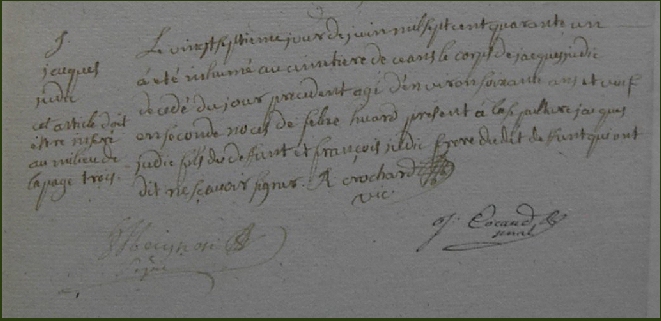 S
jacques
judic
cet article doit
être inséré
au milieu de
la page trois.
Le vingt septieme jour de juin mil sept cent quarante un
a été inhumé au cimitiere de ceans le corps de jacques judic
decédé du jour precedent agé d'environ soixante ans et veuf
en seconde noces de huard present à la sepulture jacques
judic fils du defunt et françois judic frere dudit defunt qui ont
dit ne sçavoir signer. R crochard
vic